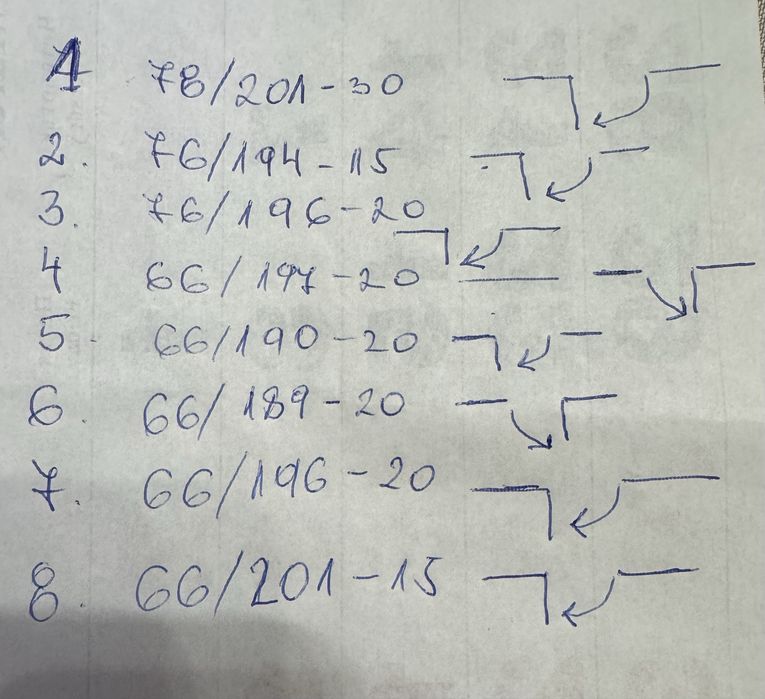 1 78/201-30
2. 76/194-15
3. 76/196-20
4 66/197-20
5. 66/190-20
6. 66/189-20
7. 66/196-20
8. 66/201-15